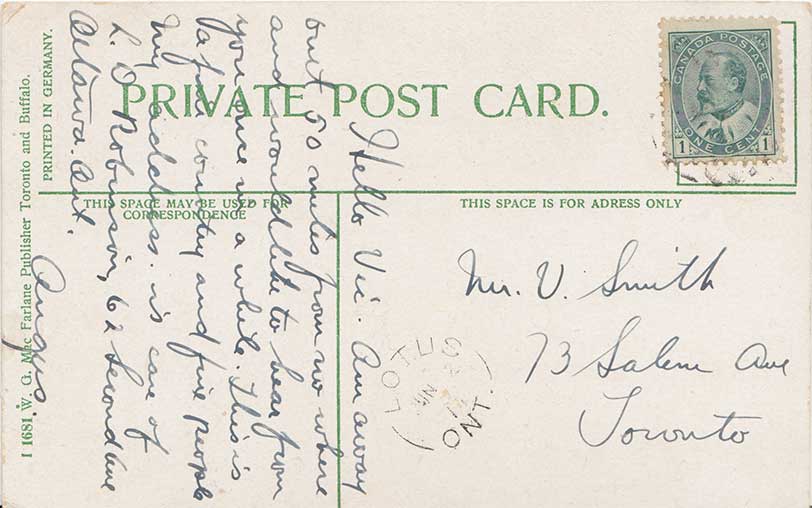 PRIVATE POST CARD.
CANADA POSTAGE
ONE CENT
1 1
THIS SPACE MAY BE USED FOR
CORRESPONDENCE
THIS SPACE IS FOR ADRESS ONLY
Mr. V. Smith
73 Salem Ave
Toronto
LOTUS
ONT.
Hello Vic. Am away
but 50 miles from no where
and would like to hear from
you once in a while. This is
a fine country and fine people
My address is care of
L. O Robinson, 62 Second Ave
Ottawa. Ont.
Angus.
PRINTED IN GERMANY.
I 1681 W. G. Mac Farlane Publisher Toronto and Buffalo.